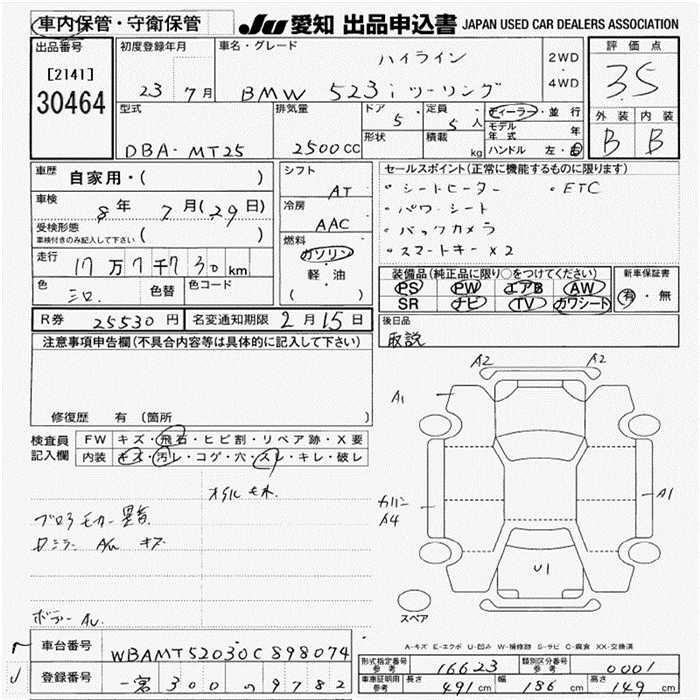 車内保管・守衛保管 JU 愛知 出品申込書 JAPAN USED CAR DEALERS ASSOCIATION
出品番号 [2141] 30464
初度登録年月 23 7月
車名・グレード ハイライン BMW 523iツーリング
2WD・4WD
評価点 3.5
外装 B 内装 B
型式 DBA-MT25
排気量 2500CC
ドア 5 定員 5人
形状 積載 kg
ディーラー・並行
モデル年式 年
ハンドル 左・右
車歴 自家用・( )
シフト AT
セールスポイント(正常に機能するものに限ります)
・シートヒーター ・ETC
・パワーシート
・バックカメラ
・スマートキー×2
車検 8年 7月(29日)
冷房 AAC
受検形態 車検付きのみ記入して下さい ( )
燃料 ガソリン・軽・油 ( )
走行 17万7千730km
色 色替 色コード
装備品(純正品に限り○をつけてください) 新車保証書
PS PW エアB AW 有・無
SR ナビ TV カワシート
R券 25530円 名変通知期限 2月15日
後日品
取説
注意事項申告欄(不具合内容等は具体的に記入して下さい)
修復歴 有 (箇所 )
検査員記入欄 FW キズ・飛石・ヒビ割・リペア跡・X要
内装 キズ・汚レ・コゲ・穴・スレ・キレ・破レ
A2 A2
A1
A4
A1
U1
スペア
A-キズ E-エクボ U-凹み W-補修跡 S-サビ C-腐食 XX-交換済
車台番号 WBAMT52030C898074
登録番号 一宮 300 の 9782
形式指定番号 参考 16623 類別区分番号 参考 0001
車庫証明用 参考 長さ 491cm 幅 186cm 高さ 149cm